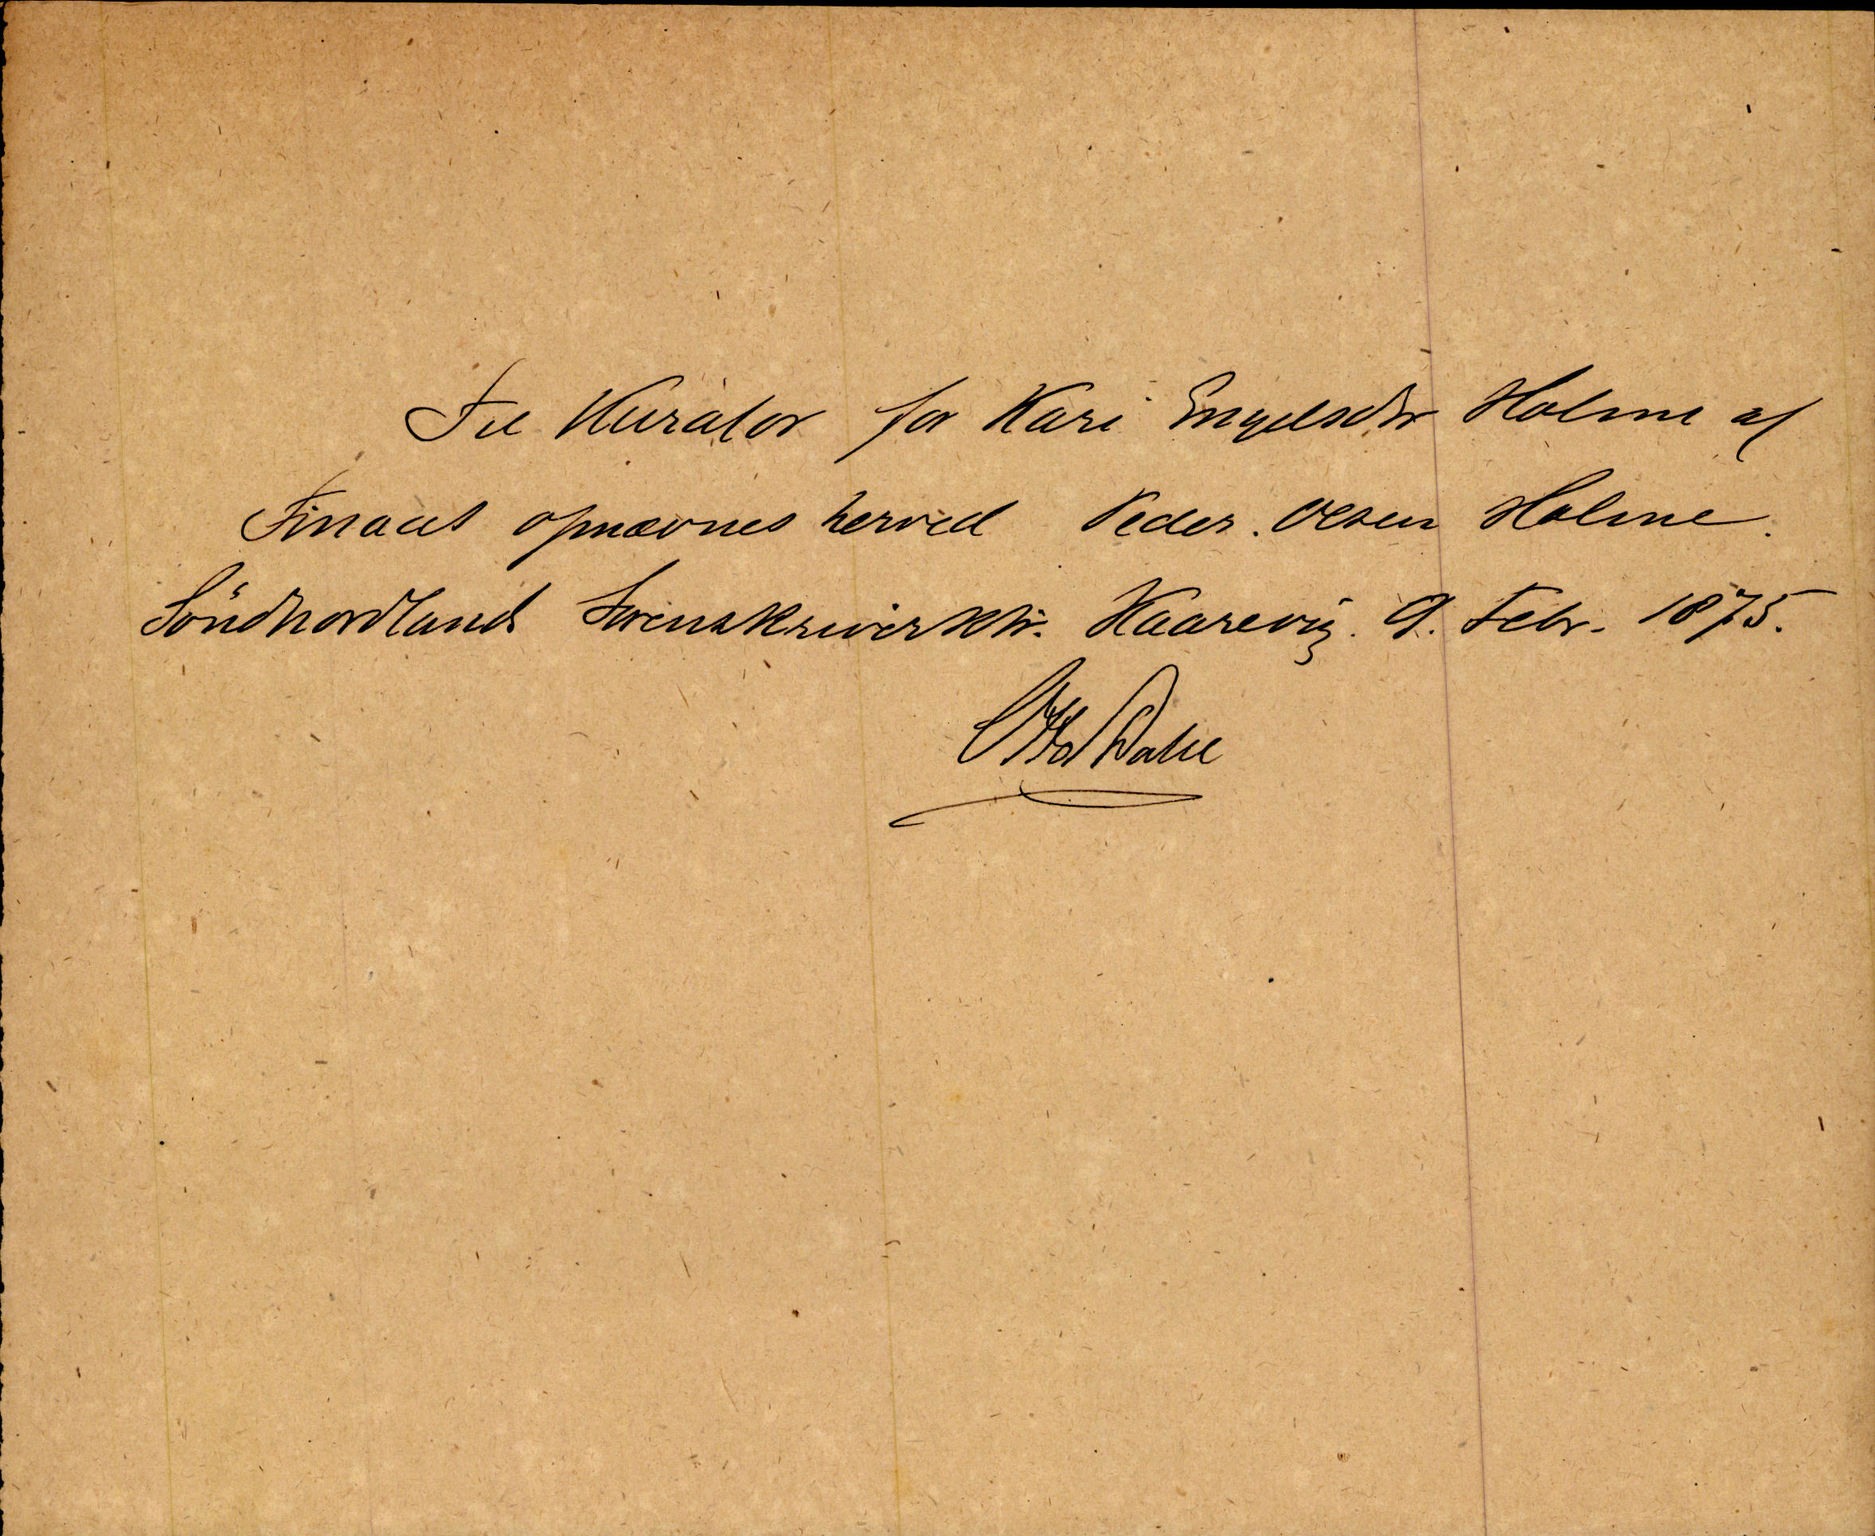 Til Kurator for Kari Engelsdtr Holme af
Finaas opnævnes herved Peder. Olsen Holme.
Søndhordland Sorenskriverktr. Haarevig. 9. Febr. 1875.
Otto Dahl